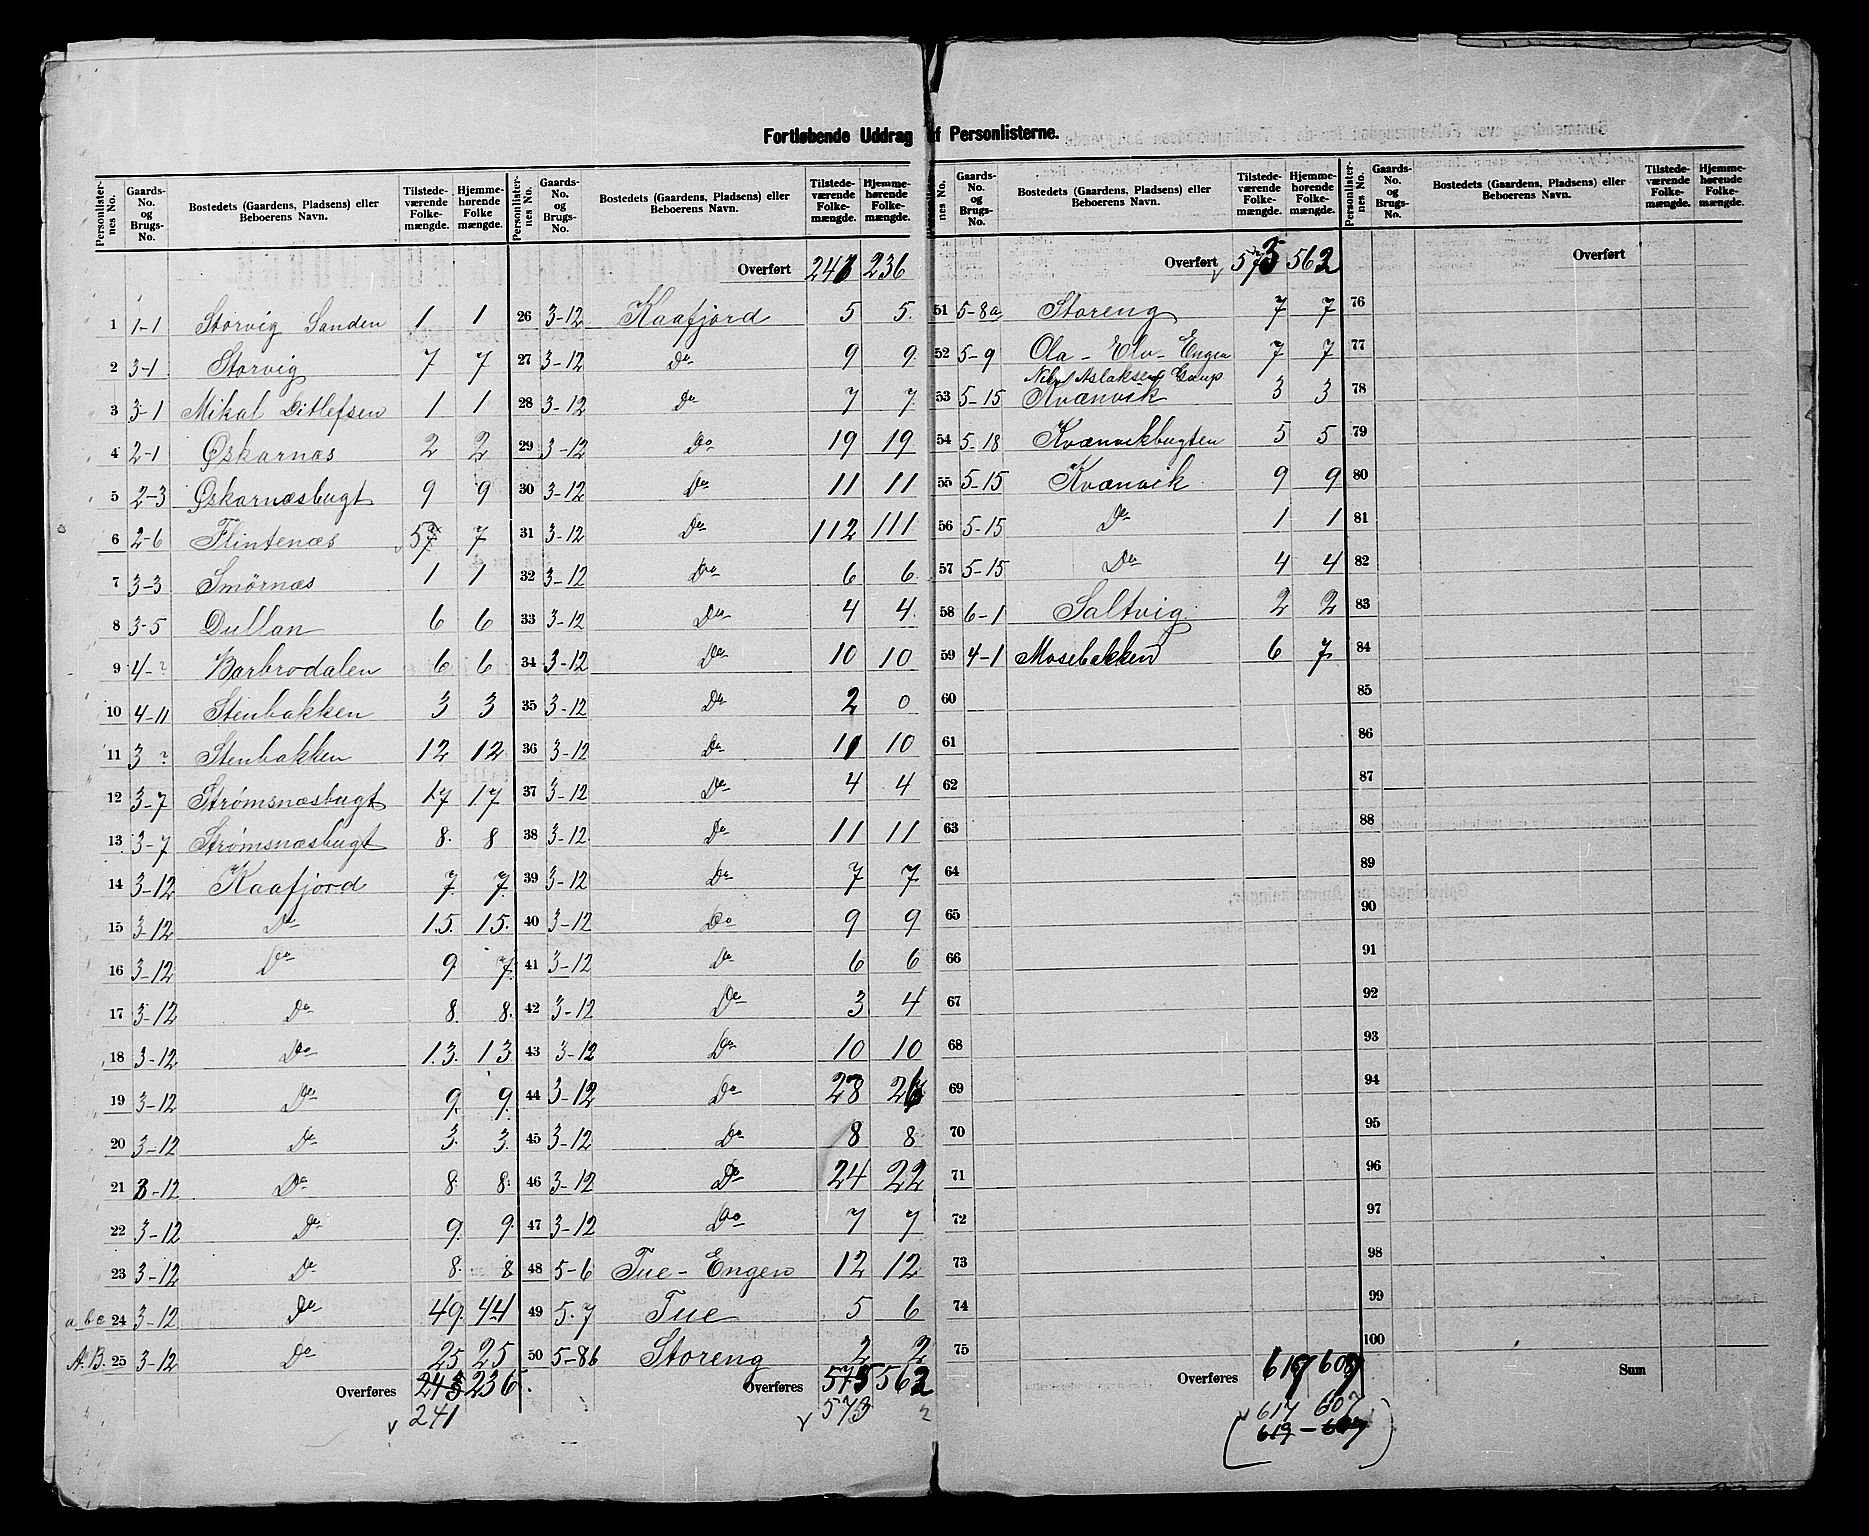 Fortløbende Uddrag af Personlisterne.
Personlister-nes No. Gaards-No. og Brugs-No. Bostedets (Gaardens, Pladsens) eller Beboerens Navn. Tilstede-værende Folke-mængde. Hjemme-hørende Folke mængde.
1 1-1 Storvig Sanden 1 1
2 3-1 Storvig 7 7
3 3-1 Mikal Ditlefsen 1 1
4 2-1 Øskarnæs 2 2
5 2-3 Øskarnæsbugt 9 9
6 2-6 Flintenæs 57 7
7 3-3 Smörnæs 1 1
8 3-5 Dullan 6 6
9 4-? Barbrodalen 6 6
10 4-11 Stenbakken 3 3
11 3 ? Stenbakken 12 12
12 3-7 Strømsnæsbugt 17 17
13 3-7 Strømsnæsbugt 8. 8
14 3-12 Kaafjord 7. 7.
15 3-12 Do 15. 15.
16 3-12 Do 9. 7.
17 3-12 Do 8. 8.
18 3-12 Do 13. 13
19 3-12 Do 9. 9.
20 3-12 Do 3. 3.
21 3-12 Do 8. 8.
22 3-12 Do 9. 9.
23 3-12 Do 8. 8
abc 24 3-12 Do 49. 44
A.B. 25 3-12 Do 25 25
Overføres 243 236.
v 241
Personlister-nes No. Gaards-No. og Brugs-No. Bostedets (Gaardens, Pladsens) eller Beboerens Navn. Tilstede-værende Folke-mængde. Hjemme-hørende Folke-mængde.
Overført 241 236
26 3-12 Kaafjord 5 5.
27 3-12 Do 9 9.
28 3-12 Do 7 7.
29 3-12 Do 19 19.
30 3-12 Do 11 11
31 3-12 Do 112 111
32 3-12 Do 6 6
33 3-12 Do 4 4.
34 3-12 Do 10 10
35 3-12 Do 2 0
36 3-12 Do 11 10
37 3-12 Do 4 4
38 3-12. Do 11 11
39 3-12 Do 7 7
40 3-12 Do 9 9
41 3-12 Do 6 6
42 3-12 Do 3 4
43 3-12 Do 10 10
44 3-12 Do 28 26
45 3-12 Do 8 8
46 3-12 Do 24 22
47 3-12 Do 7 7
48 5-6 Tue-Engen 12 12
49 5-7 Tue 5 6
50 5-8b Storeng 2 2
Overføres 575 562
v 573 2
nes No. Gaards-No. og Brugs-No. Bostedets (Gaardens, Pladsens) eller Beboerens Navn. Tilstede-værende Folke-mængde. Hjemme-hørende Folke-mængde.
Overført v 573 562
51 5-8a Storeng 7 7
52 5-9 Ola-Elv-Engen 7 7
Aslaksen Gaup
53 5-15 Kvænvik 3 3
54 5-18 Kvænvikbugten 5 5
55 5-15 Kvænvik 9 9
56 5-15 Do 1 1
57 5-15 Do 4 4
58 6-1 Saltvig 2 2
59 4-1 Mosebakken 6 7
60
61
62
63
64
65
66
67
68
69
70
71
72
73
74
75
Overføres 617 607
v 617 607
(619-607)
Personlister-nes No. Gaards-No. og Brugs-No. Bostedets (Gaardens, Pladsens) eller Beboerens Navn. Tilstede-værende Folke-mængde. Hjemme-hørende Folke-mængde.
Overført
76
77
78
79
80
81
82
83
84
85
86
87
88
89
90
91
92
93
94
95
96
97
98
99
100
Sum